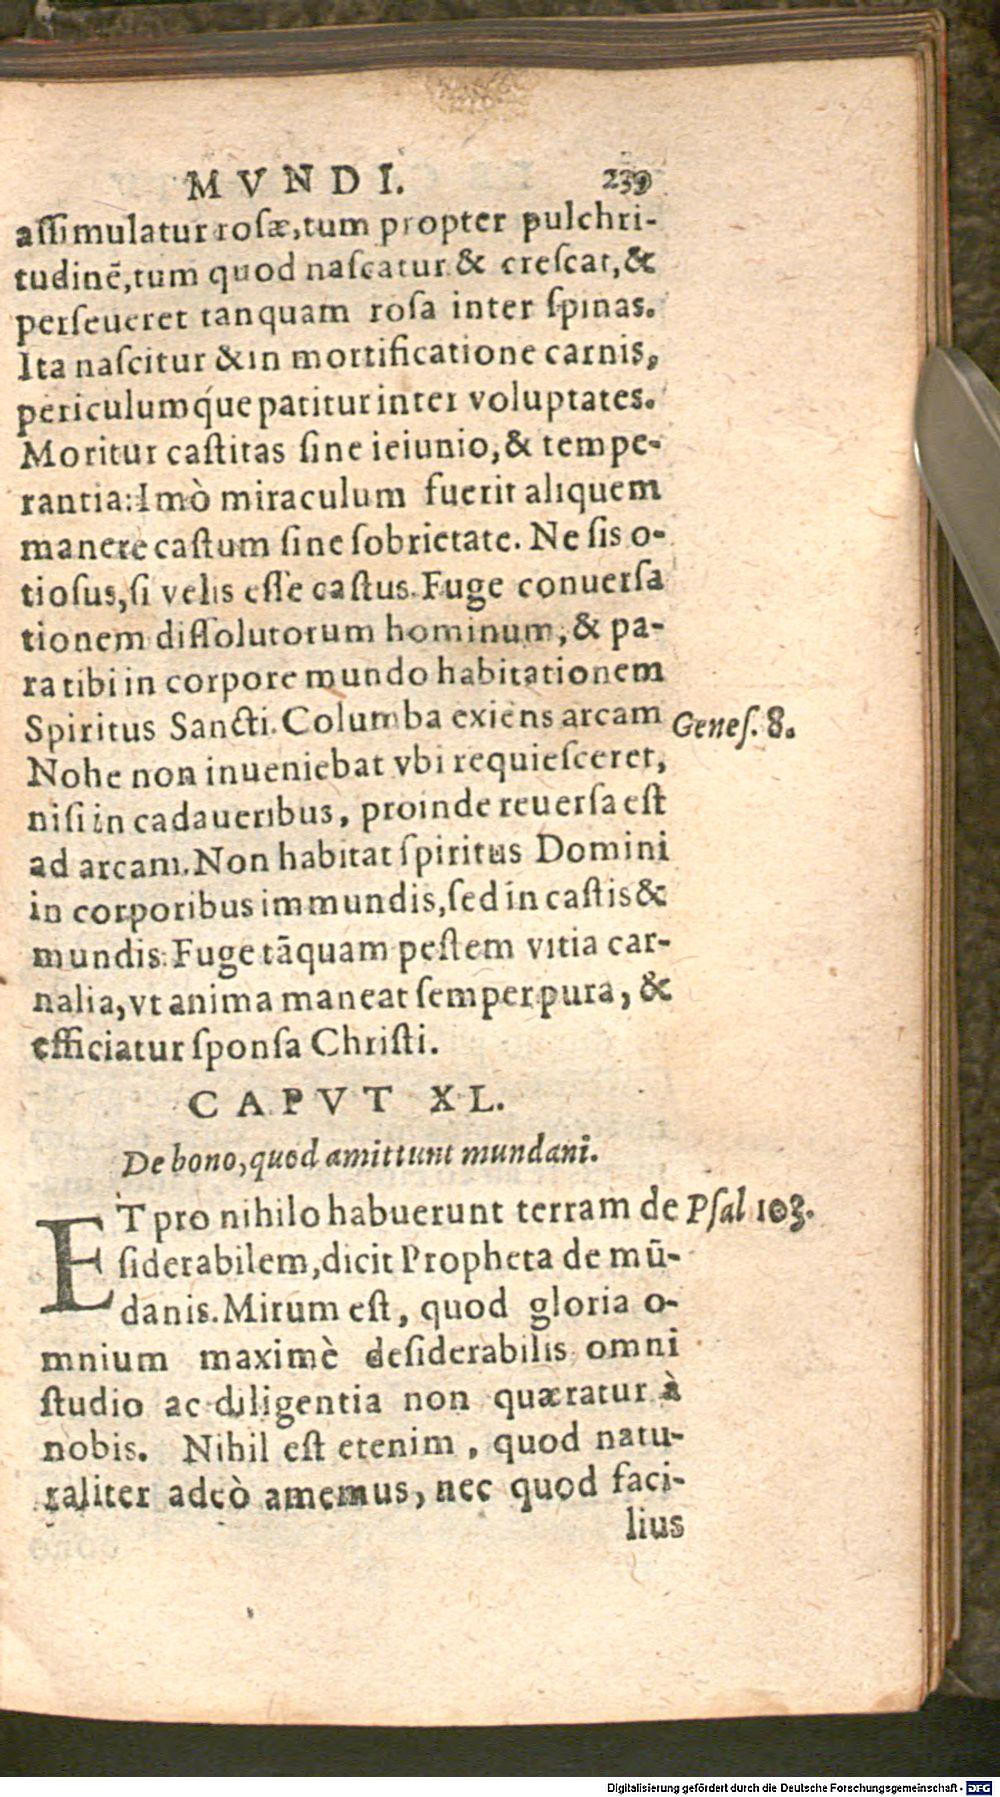 MVNDI. 239
assimulatur rosæ, tum propter pulchri-
tudinē, tum quod nascatur & crescat, &
perseueret tanquam rosa inter spinas.
Ita nascitur & in mortificatione carnis,
periculumq́ue patitur inter voluptates.
Moritur castitas sine ieiunio, & tempe-
rantia: Imò miraculum fuerit aliquem
manere castum sine sobrietate. Ne sis o-
tiosus, si velis esse castus. Fuge conuersa
tionem dissolutorum hominum, & pa-
ra tibi in corpore mundo habitationem
Spiritus Sancti. Columba exiens arcam Genes. 8.
Nohe non inueniebat vbi requiesceret,
nisi in cadaueribus, proinde reuersa est
ad arcam. Non habitat spiritus Domini
in corporibus immundis, sed in castis &
mundis. Fuge tāquam pestem vitia car-
nalia, vt anima maneat semper pura, &
efficiatur sponsa Christi.
CAPVT XL.
De bono, quod amittunt mundani.
ET pro nihilo habuerunt terram de Psal 103.
siderabilem, dicit Propheta de mū-
danis. Mirum est, quod gloria o-
mnium maximè desiderabilis omni
studio ac diligentia non quæratur à
nobis. Nihil est etenim, quod natu-
raliter adeò amemus, nec quod faci-
lius
Digitalisierung gefördert durch die Deutsche Forschungsgemeinschaft - DFG